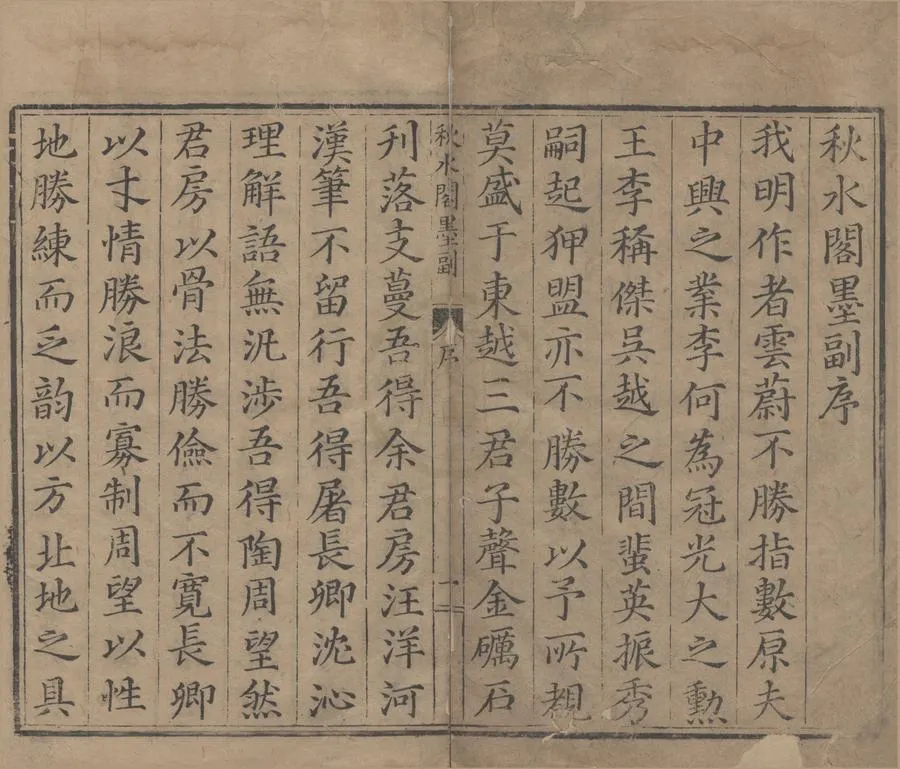 秋水閣墨副序
我明作者雲蔚不勝指數原夫
中興之業李何為冠光大之勲
王李稱傑吳越之間蜚英振秀
嗣起狎盟亦不勝數以予所覩
莫盛于東越三君子聲金礪石
秋水閣墨副
序
一
刋落支蔓吾得余君房汪洋河
漢筆不留行吾得屠長卿沈沁
理解語無汎渉吾得陶周望然
君房以骨法勝儉而不寛長卿
以才情勝浪而寡制周望以性
地勝練而乏韵以方北地之具